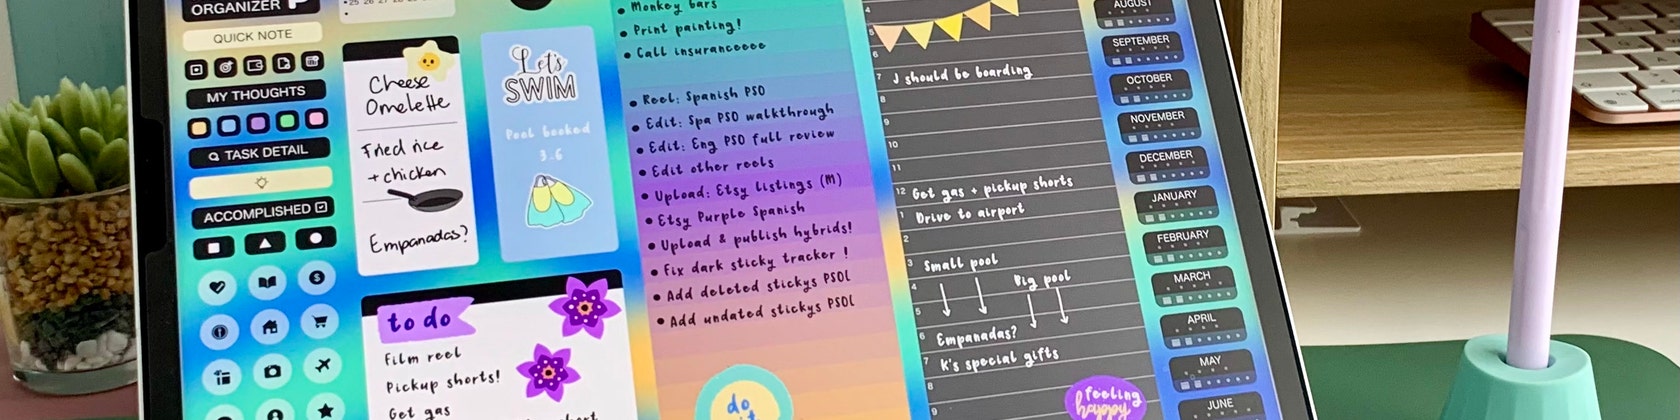 ORGANIZER
QUICK NOTE
MY THOUGHTS
TASK DETAIL
ACCOMPLISHED
Cheese
Omelette
Fried rice
+ chicken
Empanadas?
Let's
SWIM
Pool booked
3-6
to do
Film reel
Pickup shorts!
Get gas
• Monkey bars
• Print painting!
• Call insuranceeee
• Reel: Spanish PSO
• Edit: Spa PSO walkthrough
• Edit: Eng PSO full review
• Edit other reels
• Upload: Etsy listings (M)
• Etsy Purple Spanish
• Upload & publish hybrids!
• Fix dark sticky tracker !
• Add deleted stickys PSOL
• Add undated stickys PSOL
do
4
5
6
7 I should be boarding
8
9
10
11
12 Get gas + pickup shorts
1 Drive to airport
2
3 Small pool
Big pool
4
5
6 Empanadas?
7 K's special gifts
8
9
feeling
happy
AUGUST
SEPTEMBER
OCTOBER
NOVEMBER
DECEMBER
JANUARY
FEBRUARY
MARCH
APRIL
MAY
JUNE